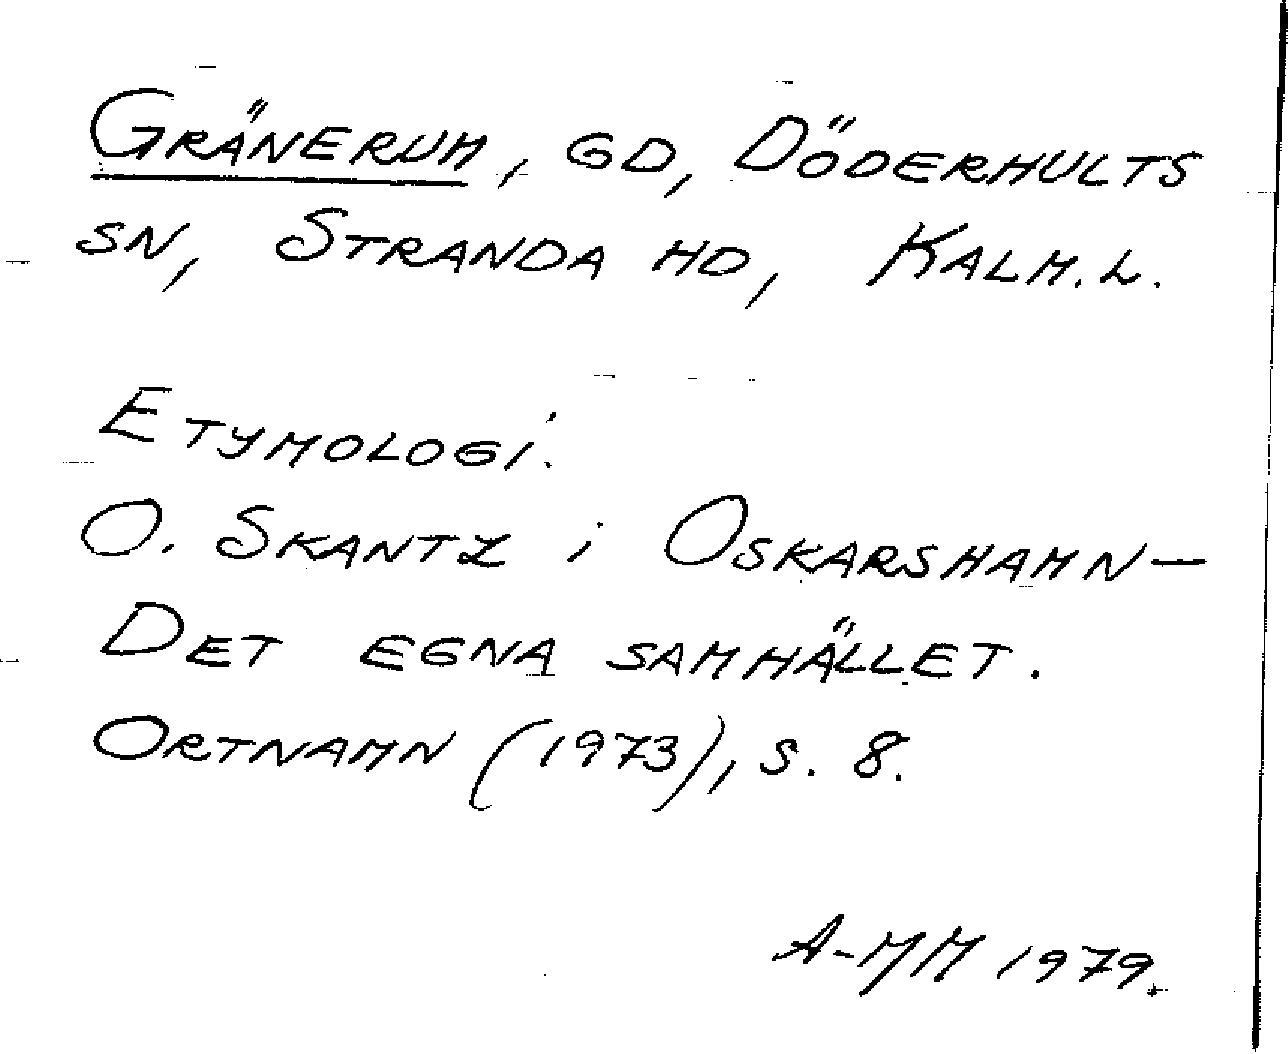 GRÄNERUM, GD, DÖDERHULTS
SN, STRANDA HD, KALM. L.
ETYMOLOGI.
O. SKANTZ i OSKARSHAMN –
DET EGNA SAMHÄLLET.
ORTNAMN (1973), S. 8.
A-MM 1979.